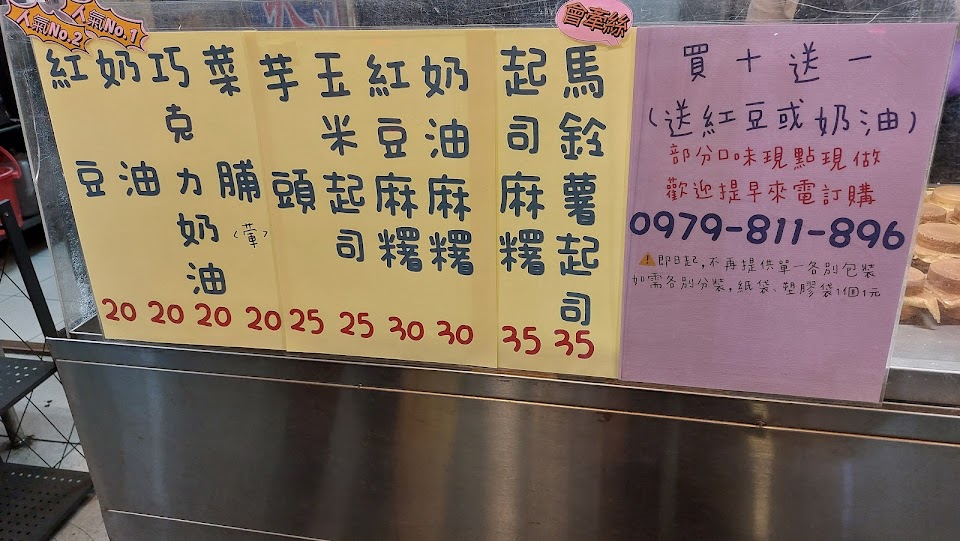 人氣No.2
人氣No.1
紅豆
20
奶油
20
巧克力奶油
20
菜脯
(葷)
20
芋頭
25
玉米起司
25
紅豆麻糬
30
奶油麻糬
30
起司麻糬
35
會牽絲
馬鈴薯起司
35
買十送一
(送紅豆或奶油)
部分口味現點現做
歡迎提早來電訂購
0979-811-896
⚠即日起,不再提供單一各別包裝
如需各別分裝,紙袋、塑膠袋1個1元